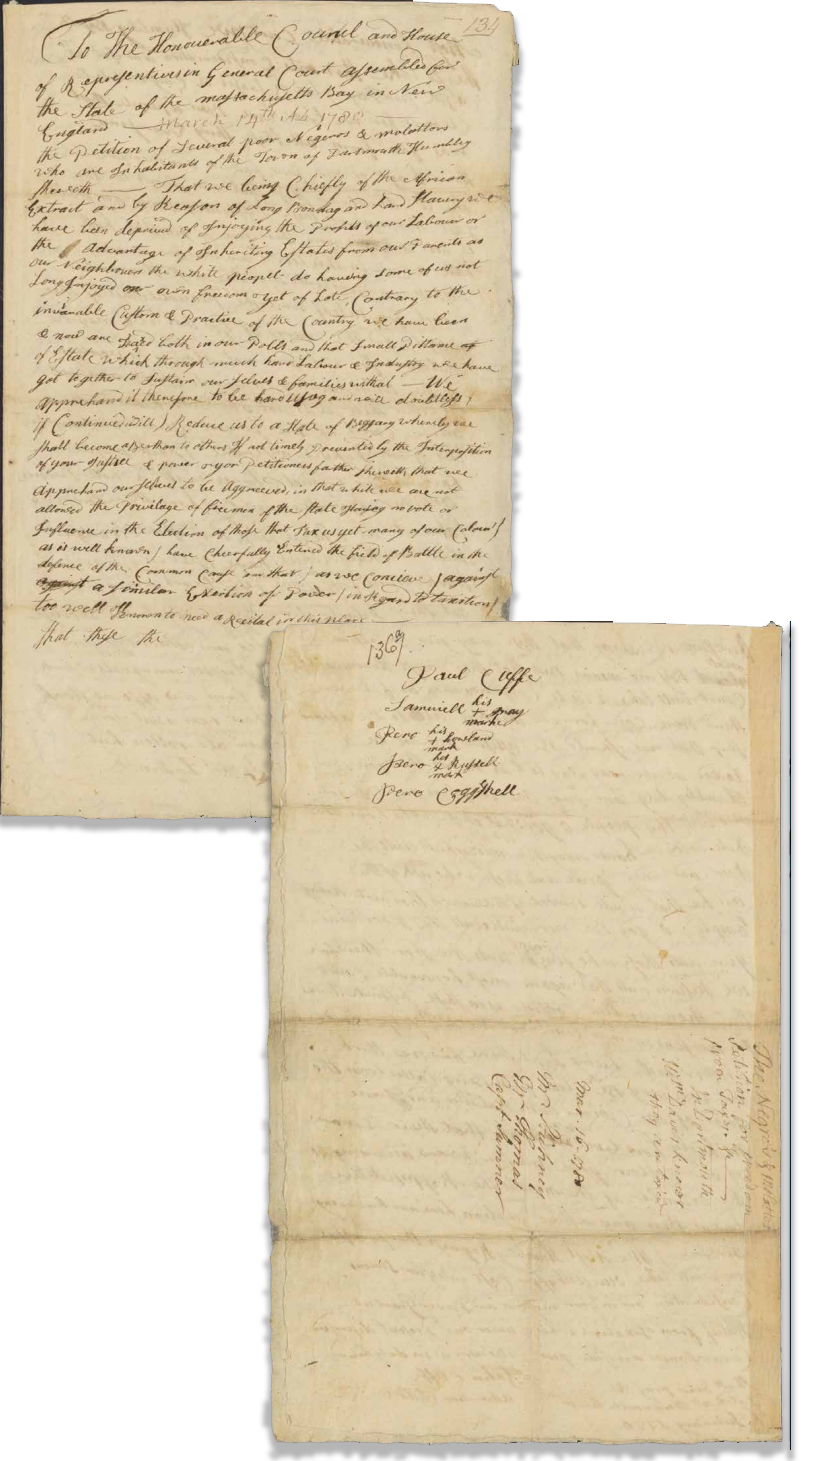 134
To The Honouerable Council and House
of Representives in General Court assembled for
the State of the massachusetts Bay in New
England — March 14th AD 1780
the Petition of Several poor Negeros & molattoes
who are Inhabitants of the Town of Dartmouth Humbley
Sheweth — That we being Chiefly of the African
Extract and by Reason of Long Bondag and hard Slavery we
have been deprived of Injoying the Profits of our Labouer or
the Advantage of Inheriting Estates from our Parents as
our Neighbouers the white peopel do having some of us not
Long Injoyed our own freedom & yet of Late, Contrary to the
invariable Custom & Practice of the Country we have been
& now are Taxed both in our Polls and that Small Pittance of
of Estate which through much hard Labour & Industry we have
got together to Sustain our selves & families withal — We
apprehand it therefore to be hard usag and will doubtless /
if Continued will ) Reduce us to a State of Beggary whereby we
shall become a Berthan to others If not timely prevented by the Interposition
of your Justice & power & yor Petitioners farther sheweth that we
apprehand ourselves to be Aggreeved, in that while we are not
allowed the Privilage of freemen of the State having no vote or
Influence in the Election of those that Tax us yet many of our Colour /
as is well known / have Cheerfully Entered the field of Battle in the
defence of the Common Cause and that / as we Conceive / against
against a similar Exertion of Power / in Regard to taxation /
too well Known to need a Recital in this place —
that these the
136
Paul Cuffe
his
Samuiell + gray
mark
his
Pero + howland
mark
his
Pero + Russell
mark
Pero Coggeshell
The Negroes & mulattoes
Petition for freedom
from Taxes
in Dartmouth
they are taxed
Mar. 16. 1780
Mr
Dr Thomas
Capt Sumner